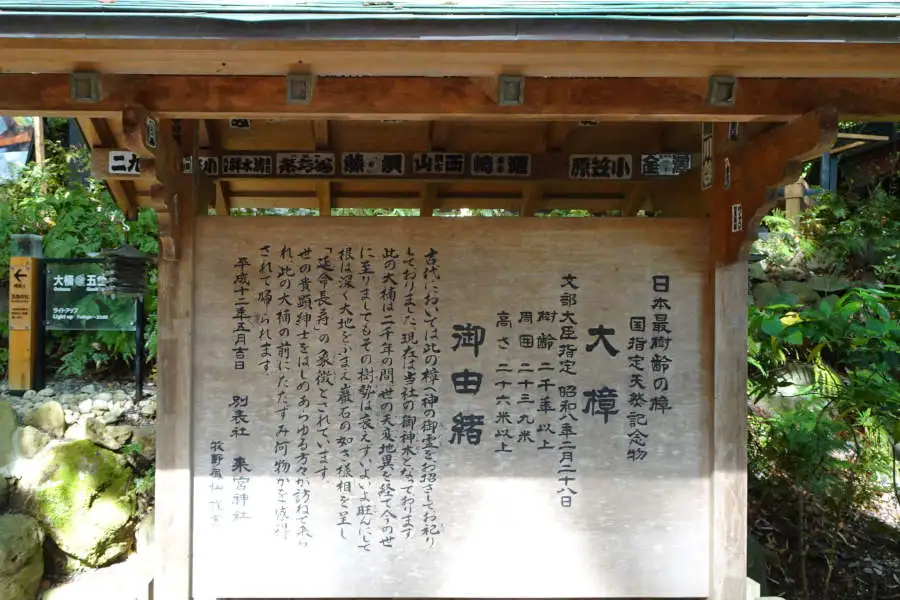 日本最樹齢の樟
国指定天然記念物
大樟
文部大臣指定 昭和八年二月二十八日
樹齢 二千年以上
周囲 二十三、九米
高さ 二十六米以上
御由緒
古代においては此の樟へ神の御霊をお招きしてお祀り
しておりました 現在は当社の御神木となっております
此の大楠は二千年の間 世の天変地異を経て今の世
に至りましてもその樹勢は衰えずいよいよ旺んにして
根は深く大地をふまえ巌石の如き様相を呈し
「延命長寿」の象徴とされています
世の貴顕紳士をはじめあらゆる方々が訪ねて来ら
れ 此の大楠の前にたたずみ何物かを
されて帰られます。
平成十二年五月吉日
別表社 来宮神社
牧野
九二
小
清水群
藤
西山
小笠原
大楠
五
ライトアップ
Light up